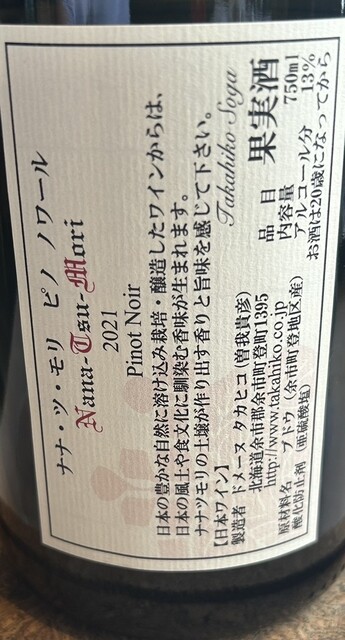 ナナ・ツ・モリ ピノ ノワール
Nana-Tsu-Mori
2021
Pinot Noir
日本の豊かな自然に溶け込み栽培・醸造したワインからは、
日本の風土や食文化に馴染む香味が生まれます。
ナナツモリの土壌が作り出す香りと旨味を感じて下さい。
Takahiko Soga
【日本ワイン】
製造者 ドメーヌ タカヒコ(曽我貴彦)
北海道余市郡余市町登町1395
http://www.takahiko.co.jp
原材料名 ブドウ(余市町登地区産)
酸化防止剤(亜硫酸塩)
品目 果実酒
内容量 750ml
アルコール分 13%
お酒は20歳になってから